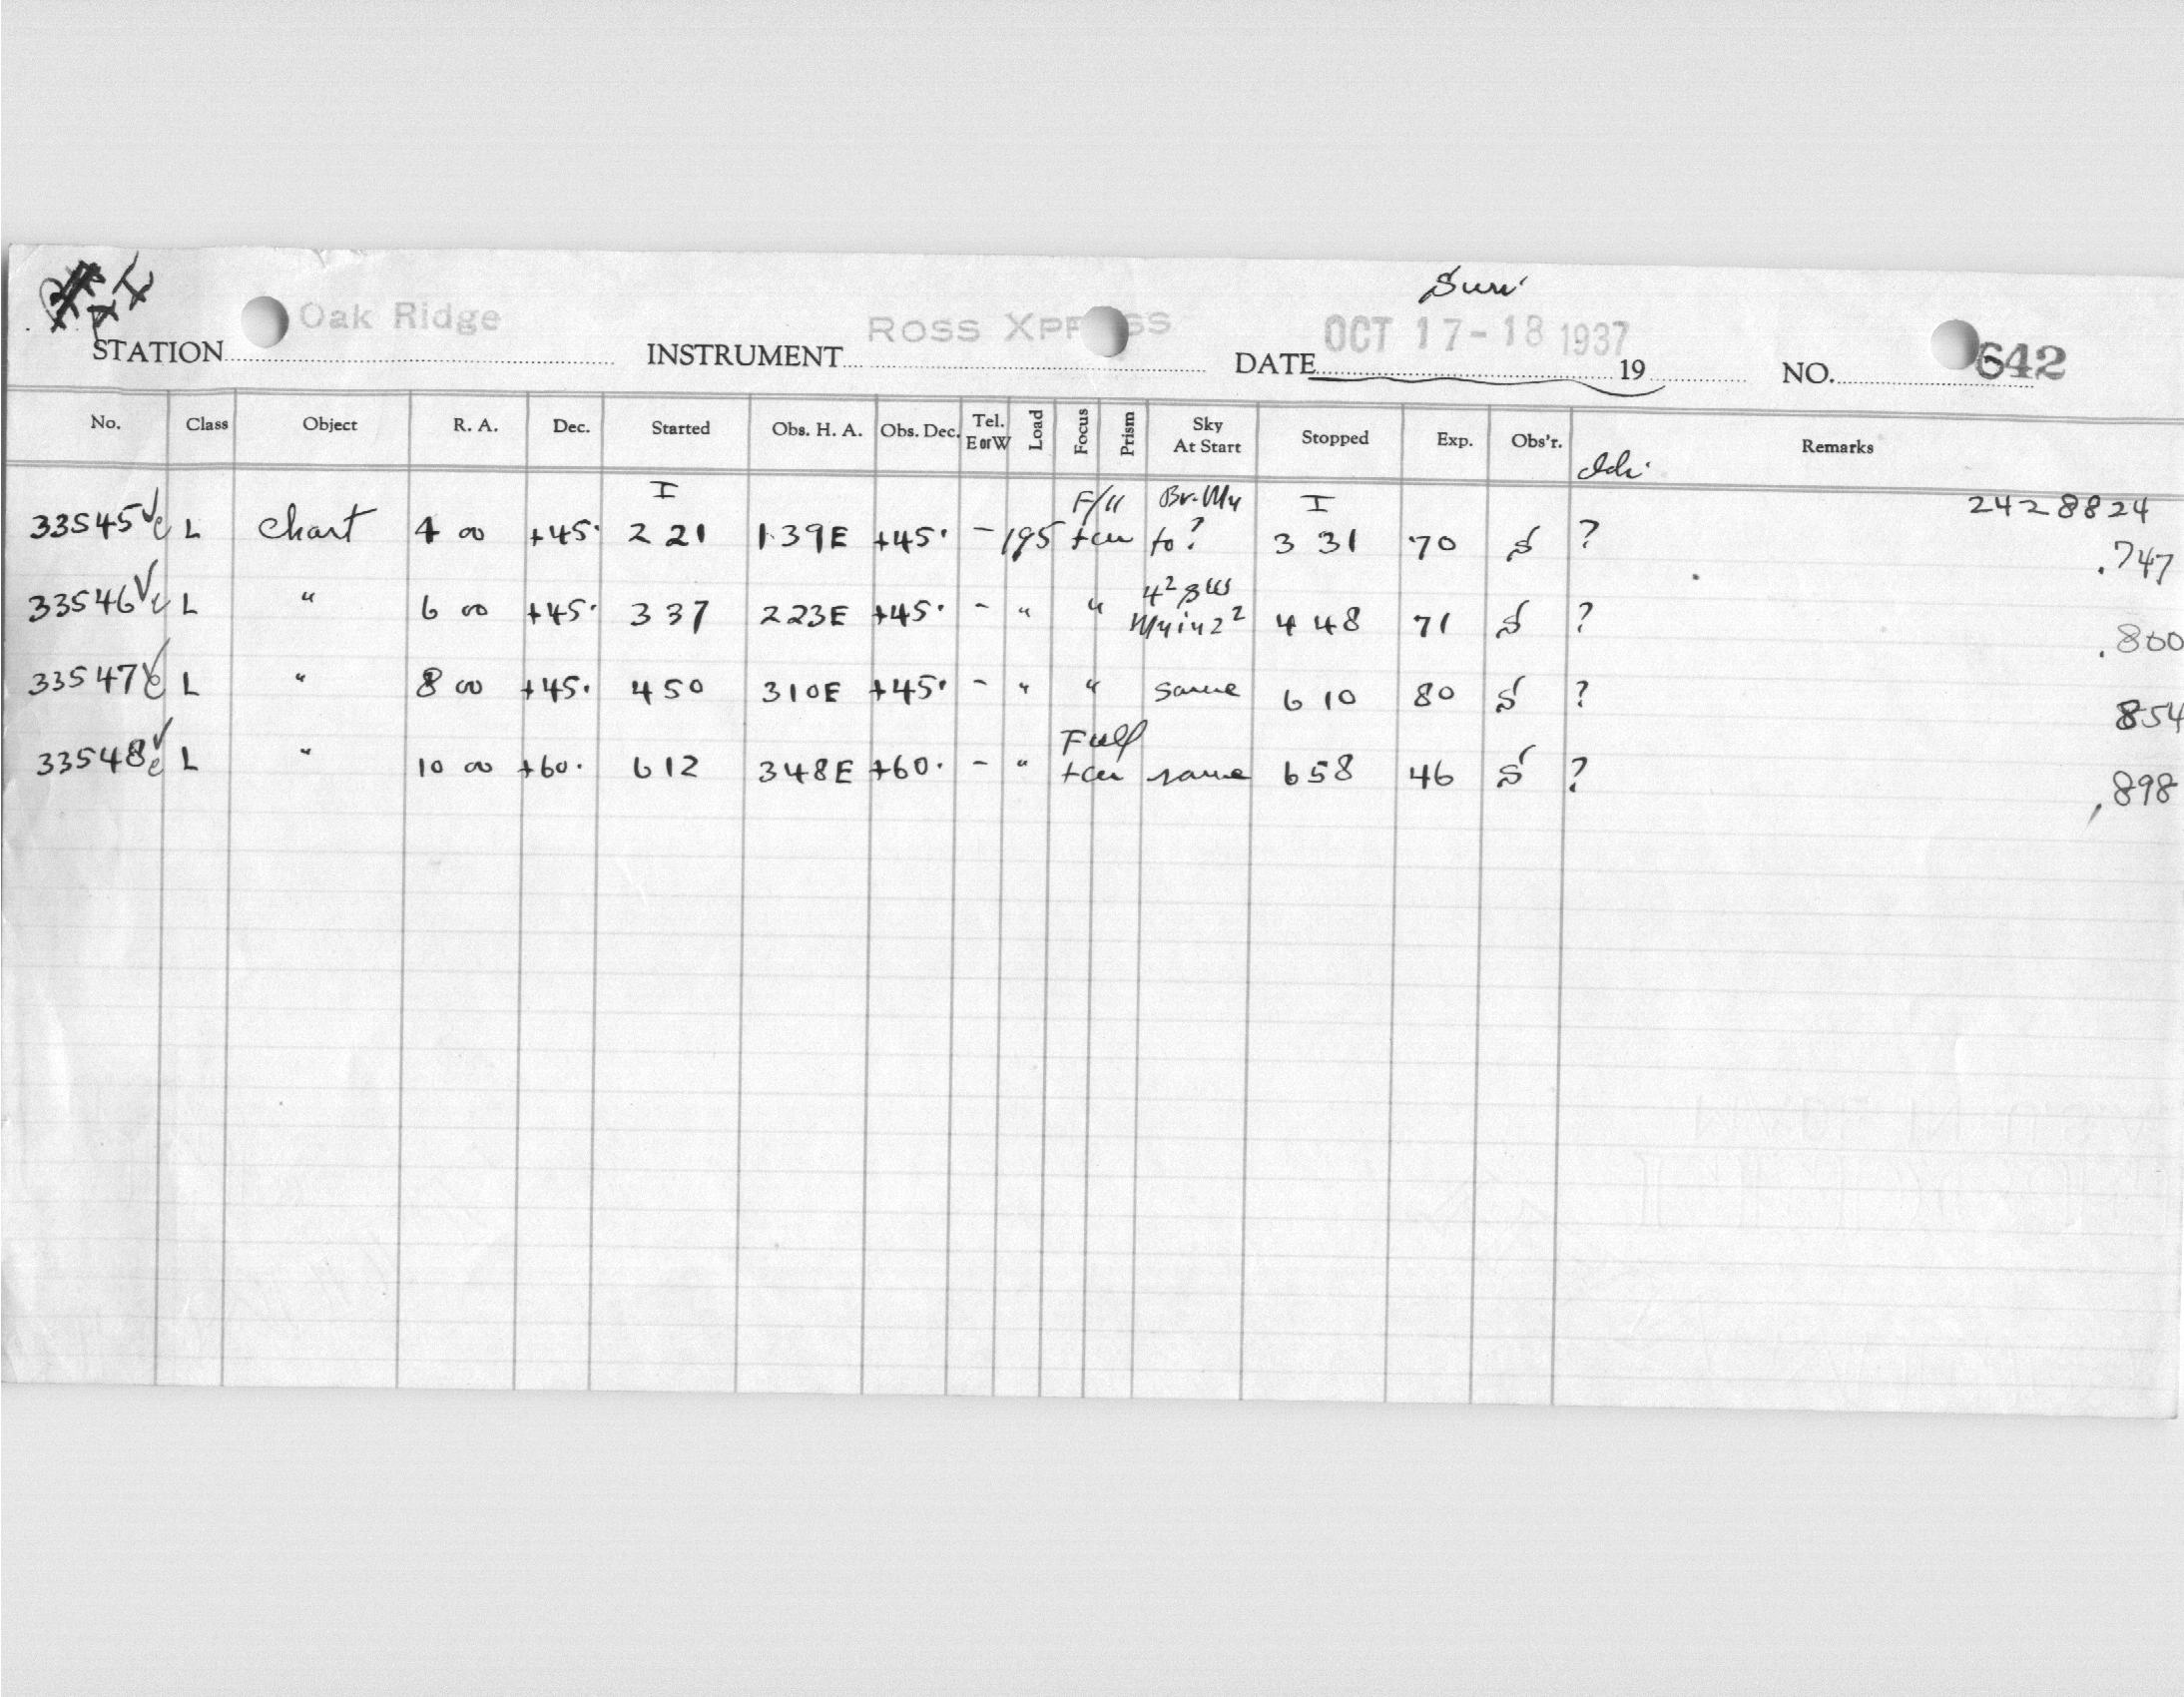 Sun.
STATION Oak Ridge INSTRUMENT ROSS XPRESS DATE OCT 17-18 1937 19 NO. 642
No. Class Object R. A. Dec. Started Obs. H. A. Obs. Dec. Tel. E or W Load Focus Prism Sky At Start Stopped Exp. Obs'r. Remarks
I F/11 Br. My I 2428824
33545 L Chart 4 00 +45° 2 21 1 39E +45° - 195 to? 3 31 70 S ? .747
33546 L " 6 00 +45° 3 37 2 23E +45° - " " 4 48 71 S ? .800
33547 L " 8 00 +45° 4 50 3 10E +45° - " " same 6 10 80 S ? 854
Full
33548 L " 10 00 +60° 6 12 3 48E +60° - " same 6 58 46 S ? .898